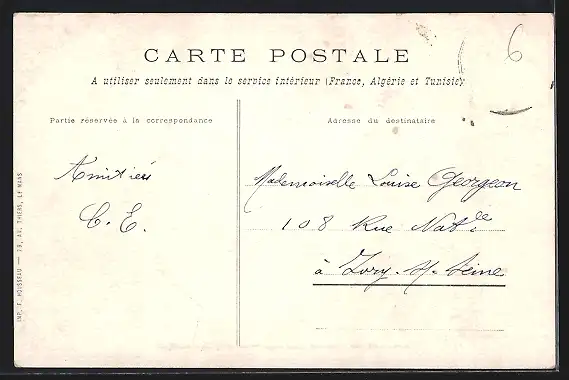 6
CARTE POSTALE
A utiliser seulement dans le service intérieur (France, Algérie et Tunisie)
Partie réservée à la correspondance
Adresse du destinataire
Amitiés
C. E.
Mademoiselle Louise Georgeon
108 Rue Nat.le
à Ivry-s/-Seine
IMP. F. HOUSSEAU — 29, AV. THIERS, LE MANS